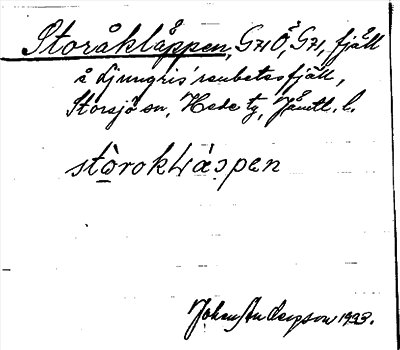 Storåkläppen, G71Ö, G71, fjäll
å Ljungris' renbetesfjäll,
Storsjö sn, Hede tg, Jämtl. l.
stòrokLäpen
Johan Anderson 1933.